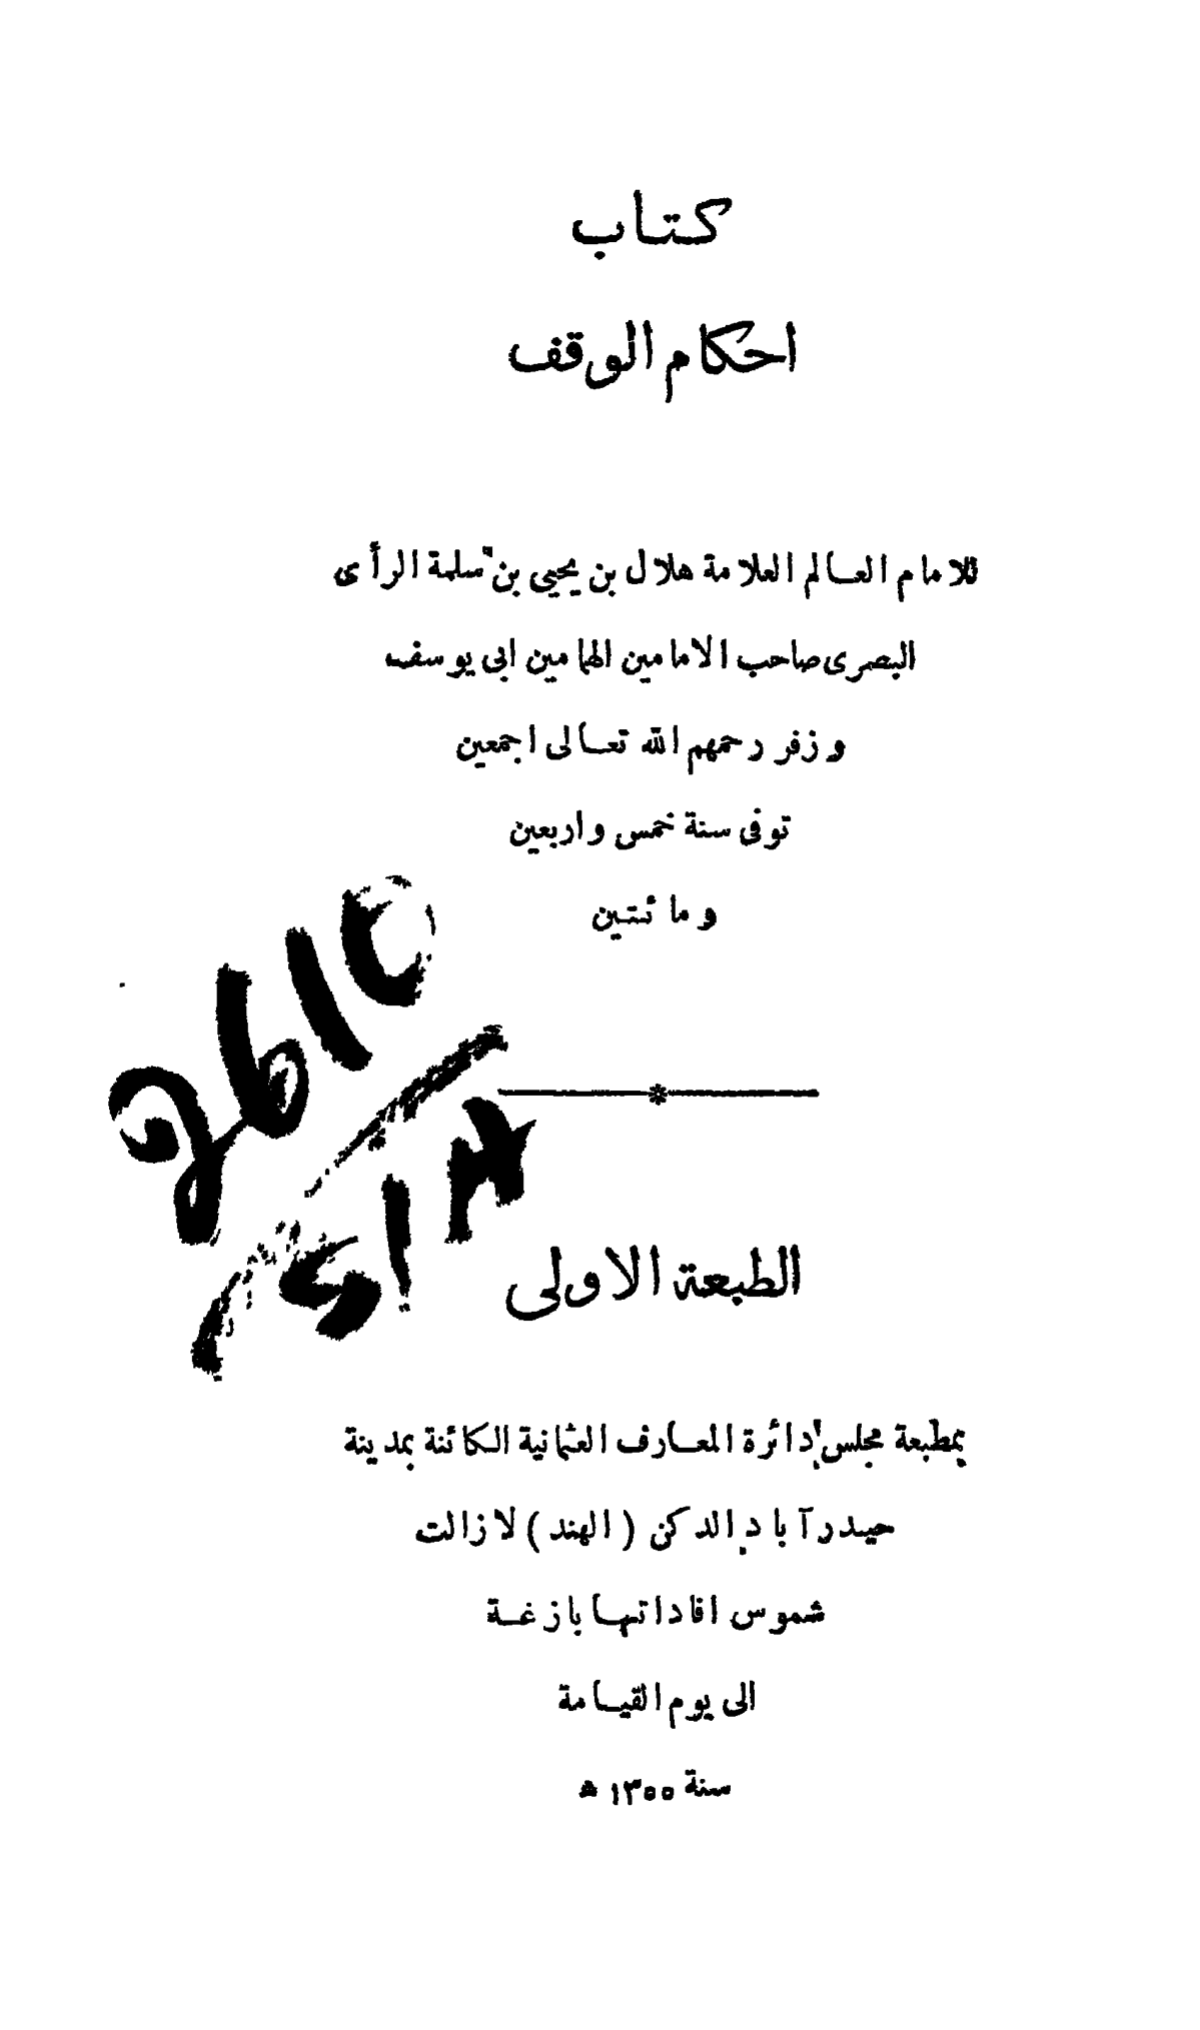 كتاب
احكام الوقف
للامام العالم العلامة هلال بن يحيى بن سلمة الرأى
البصرى صاحب الامامين الهمامين ابى يوسف
و زفر رحمهم الله تعالى اجمعين
توفى سنة خمس واربعين
ومائتين
الطبعة الاولى
بمطبعة مجلس دائرة المعارف العثمانية الكائنة بمدينة
حيدرآباد الدكن (الهند) لا زالت
شموس افاداتها بازغة
الى يوم القيامة
سنة ١٣٥٥ ھ